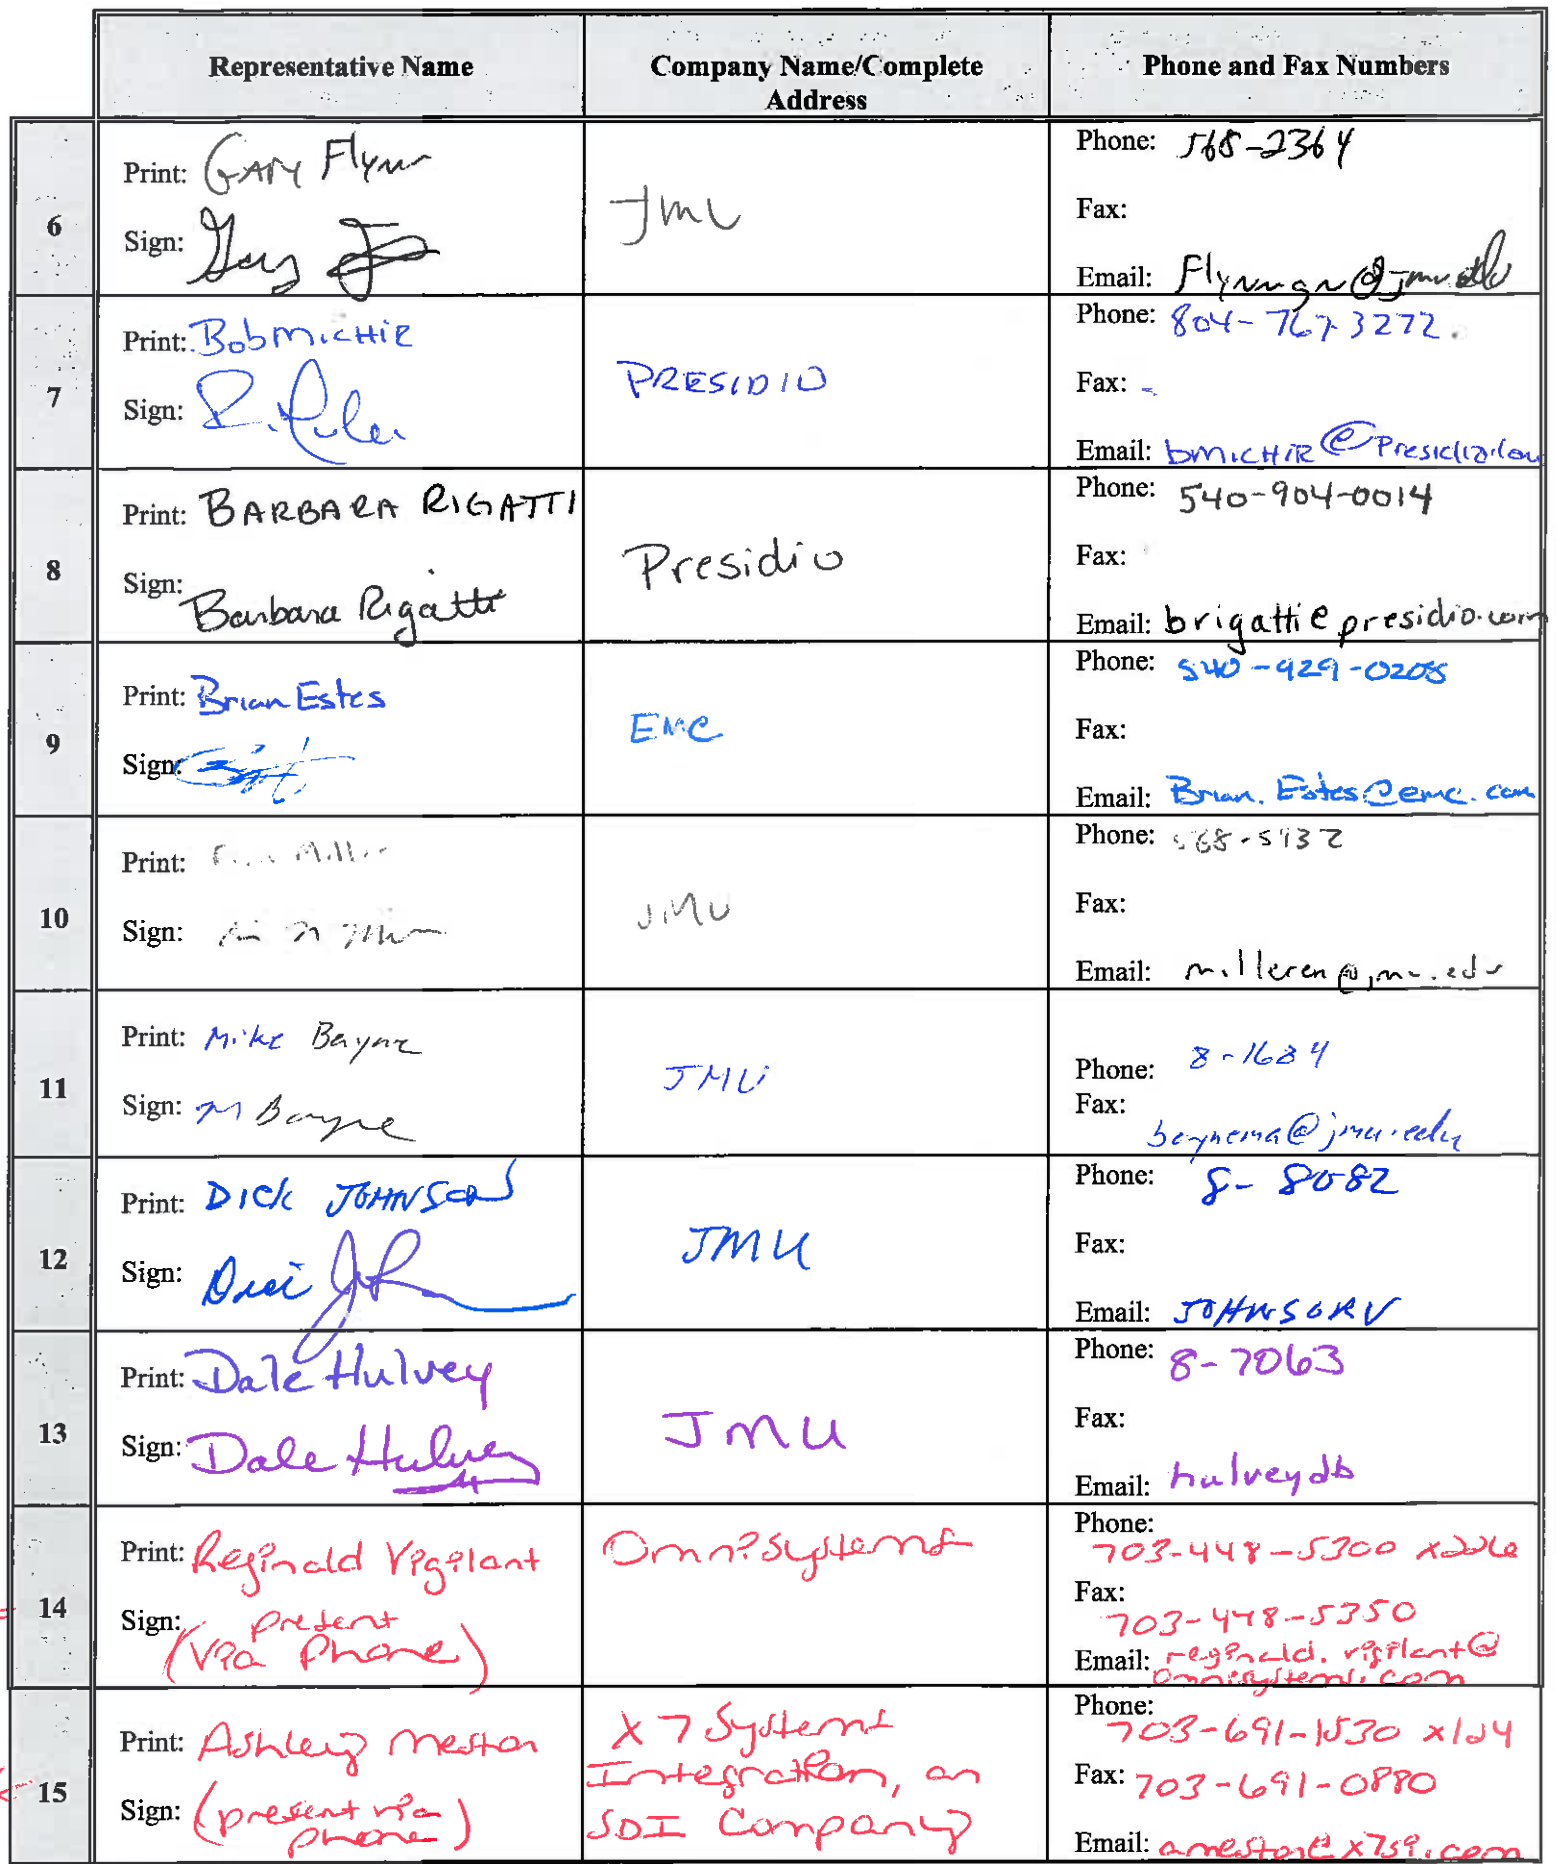 Representative Name
Company Name/Complete
Address
Phone and Fax Numbers
6
Print: GARY Flynn
Sign: Gary
JMU
Phone: 568-2364
Fax:
Email: Flynngn@jmu.edu
7
Print: Bob MICHIE
Sign:
PRESIDIO
Phone: 804-767-3272
Fax: -
Email: bmichie@Presidio.com
8
Print: BARBARA RIGATTI
Sign: Barbara Rigatti
Presidio
Phone: 540-904-0014
Fax:
Email: brigatti@presidio.com
9
Print: Brian Estes
Sign:
EMC
Phone: 540-929-0205
Fax:
Email: Brian.Estes@emc.com
10
Print: Miller
Sign:
JMU
Phone: 568-5932
Fax:
Email: milleren@jmu.edu
11
Print: Mike Bayne
Sign: M Bayne
JMU
Phone: 8-1684
Fax:
baynema@jmu.edu
12
Print: DICK JOHNSON
Sign:
JMU
Phone: 8-8082
Fax:
Email: JOHNSORV
13
Print: Dale Hulvey
Sign: Dale Hulvey
JMU
Phone: 8-7063
Fax:
Email: hulveydb
14
Print: Reginald Vigilant
Sign: present
(via phone)
Omnisystems
Phone:
703-448-5300 x226
Fax:
703-448-5350
Email: reginald.vigilant@
omnisystems.com
15
Print: Ashley Mestor
Sign: (present via
phone)
X7 Systems
Integration, an
SDI Company
Phone:
703-691-1530 x124
Fax: 703-691-0880
Email: amestor@x7si.com